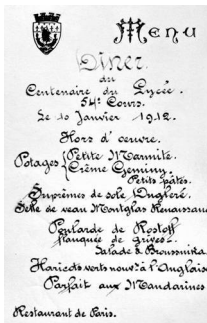 Menu
Dîner
du
Centenaire du Lycée.
54e Cours.
Le 10 Janvier 1912.
Hors d'œuvre.
Potages { Petite Marmite.
Crème Geminy.
Petits pâtés.
Suprêmes de sole Dugléré.
Selle de veau Montglas Renaissance
Poularde de Rostoff
Flanquée de grives.
Salade à Broussnika
Haricots verts nouvx à l'Anglaise
Parfait aux Mandarines
Restaurant de Paris.